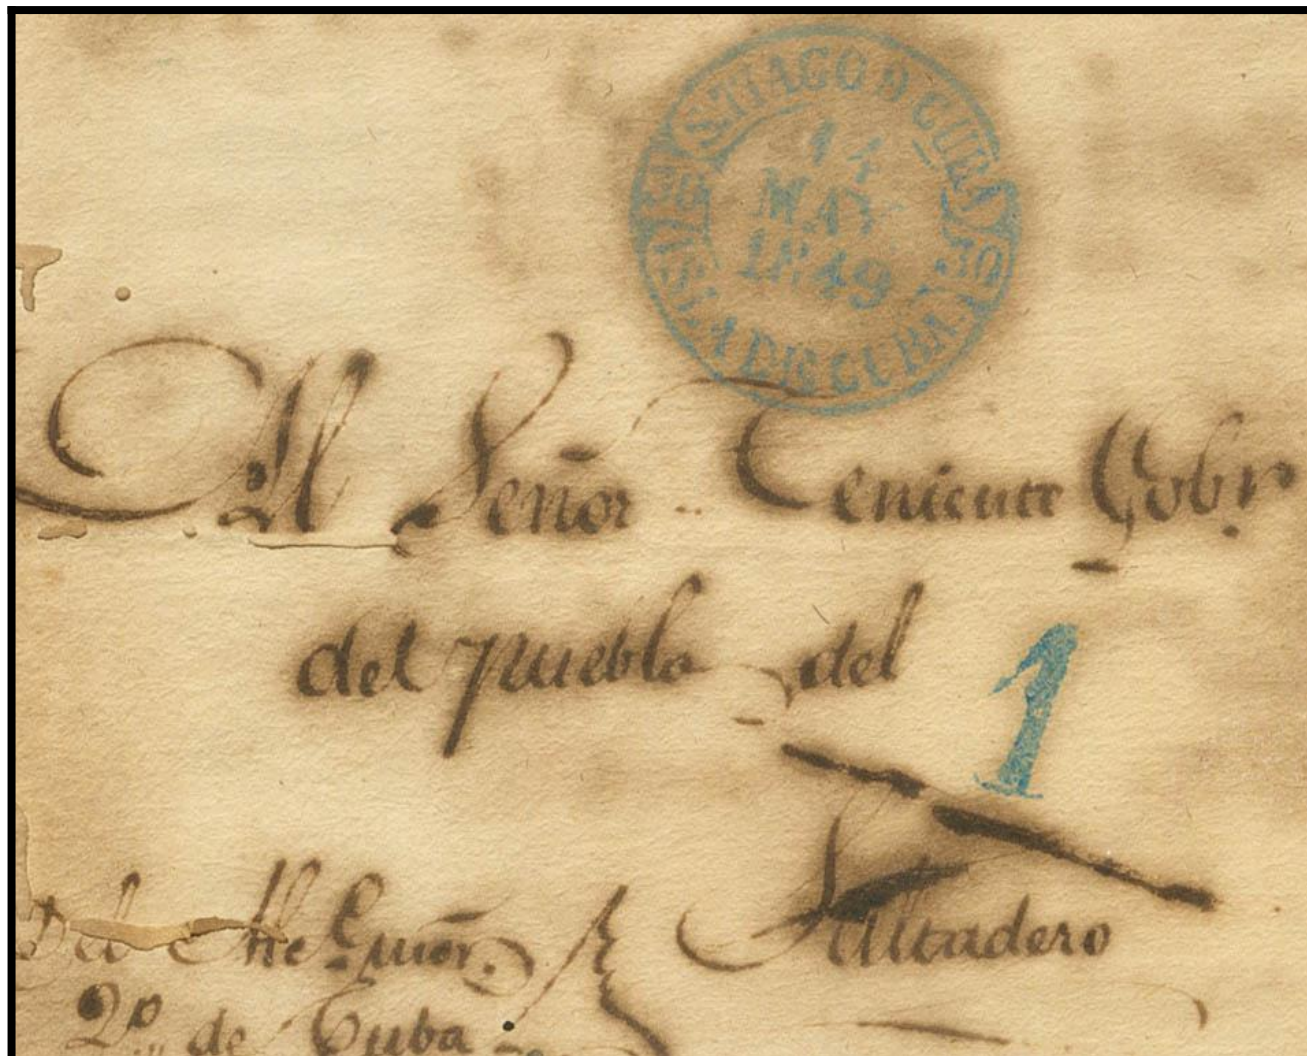 SANTIAGO D CUBA
14
MAY
1849
ISLA DE CUBA
Al Señor Teniente Gobr
del pueblo del
1
Saltadero
Del
2º de Cuba